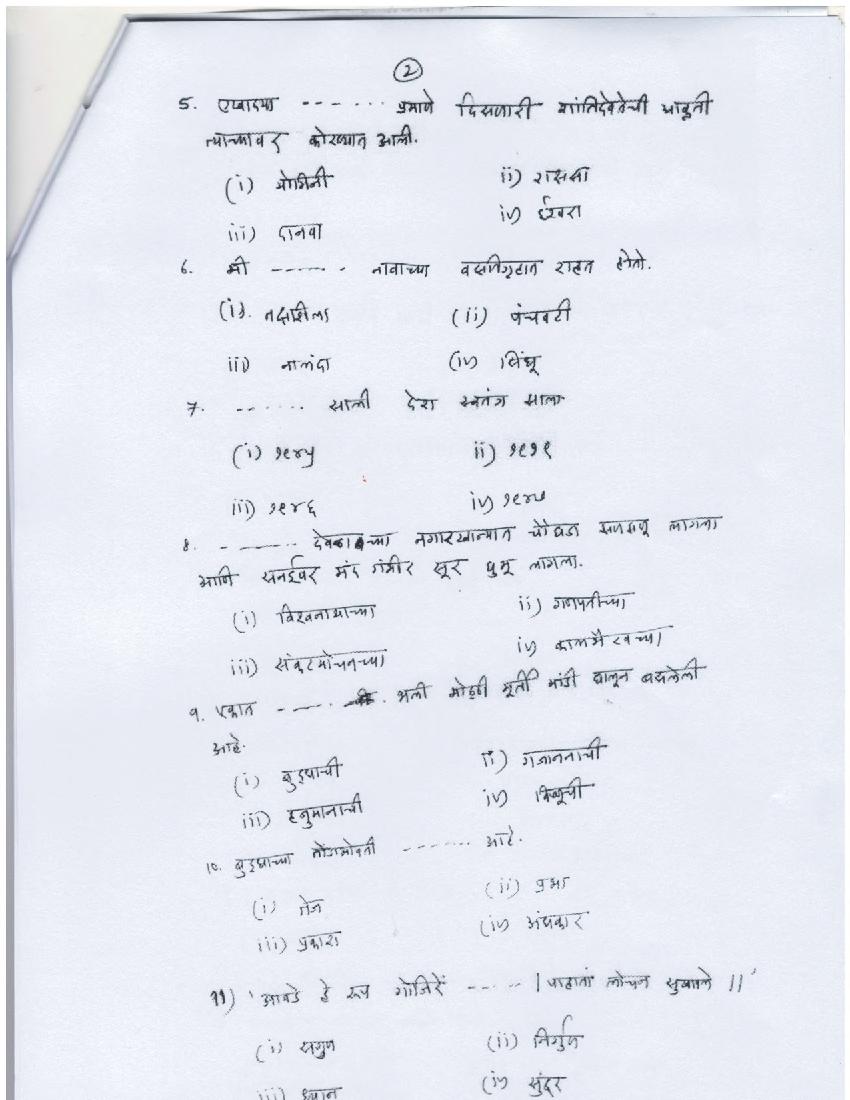 2
5. एखाद्या ------ प्रमाणे दिसणारी शांतिदेवतेची पाहुती
त्याच्यावर कोरण्यात आली.
(i) योगिनी ii) राक्षसा
iii) दानवा iv) ईश्वरा
6. मी ------ नावाच्या वसतिगृहात राहत होतो.
(i). तक्षशिला (ii) पंचवटी
iii) नालंदा (iv) सिंधू
7. ------ साली देश स्वतंत्र झाला
(i) १९४५ ii) १९५१
iii) १९४६ iv) १९४७
8. ------ देवळाच्या नगारखान्यात चौघडा झणझणू लागला
आणि सनईवर मंद गंभीर सूर घुमू लागला.
(i) विश्वनाथाच्या ii) गणपतीच्या
iii) संकटमोचनच्या iv) कालभैरवच्या
9. एकात ------ भली मोठ्ठी मूर्ती मांडी घालून बसलेली
आहे.
(i) बुद्धाची ii) गजाननाची
iii) हनुमानाची iv) विष्णूची
10. बुद्धाच्या तोंडाभोवती ------ आहे.
(i) तेज (ii) प्रभा
iii) प्रकाश (iv) अंधकार
11) 'आवडे हे रूप गोजिरें ----- | पाहातां लोचन सुखावले ||'
(i) सगुण (ii) निर्गुण
iii) ध्यान (iv) सुंदर